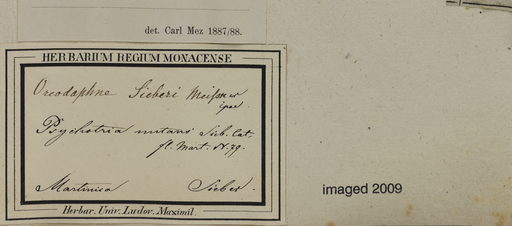 det. Carl Mez 1887/88.
HERBARIUM REGIUM MONACENSE
Oreodaphne Sieberi Meißner
ipse.
Psychotria nutans Sieb. Cat.
fl. Mart. N. 79.
Martinica Sieber.
Herbar. Univ. Ludov. Maximil.
imaged 2009